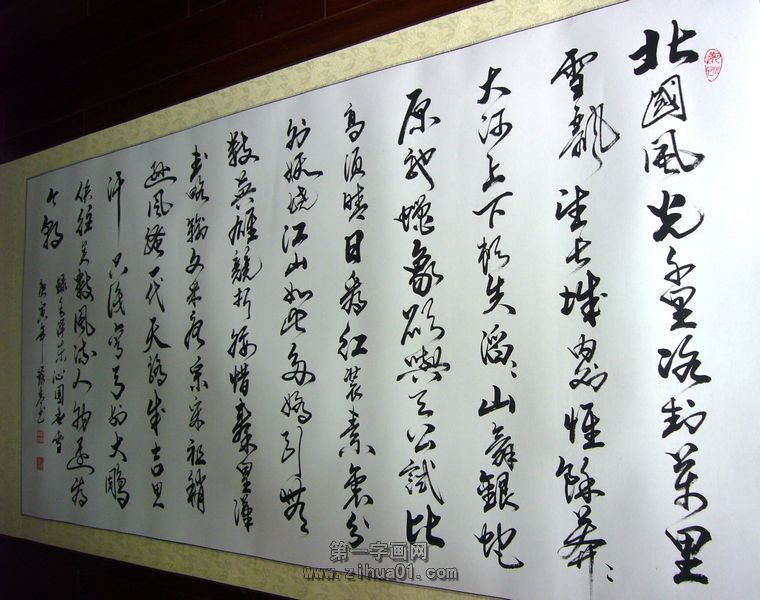 北國風光千里冰封萬里
雪飄望長城內外惟餘莽々
大河上下頓失滔々山舞銀蛇
原馳蠟象欲與天公試比
高須晴日看紅裝素裹分
外妖嬈江山如此多嬌引無
數英雄競折腰惜秦皇漢
武略輸文采唐宗宋祖稍
遜風騷一代天驕成吉思
汗只識彎弓射大鵰
俱往矣數風流人物還看
今朝
錄毛澤東沁園春雪
庚寅年
第一字画网
www.zihua01.com